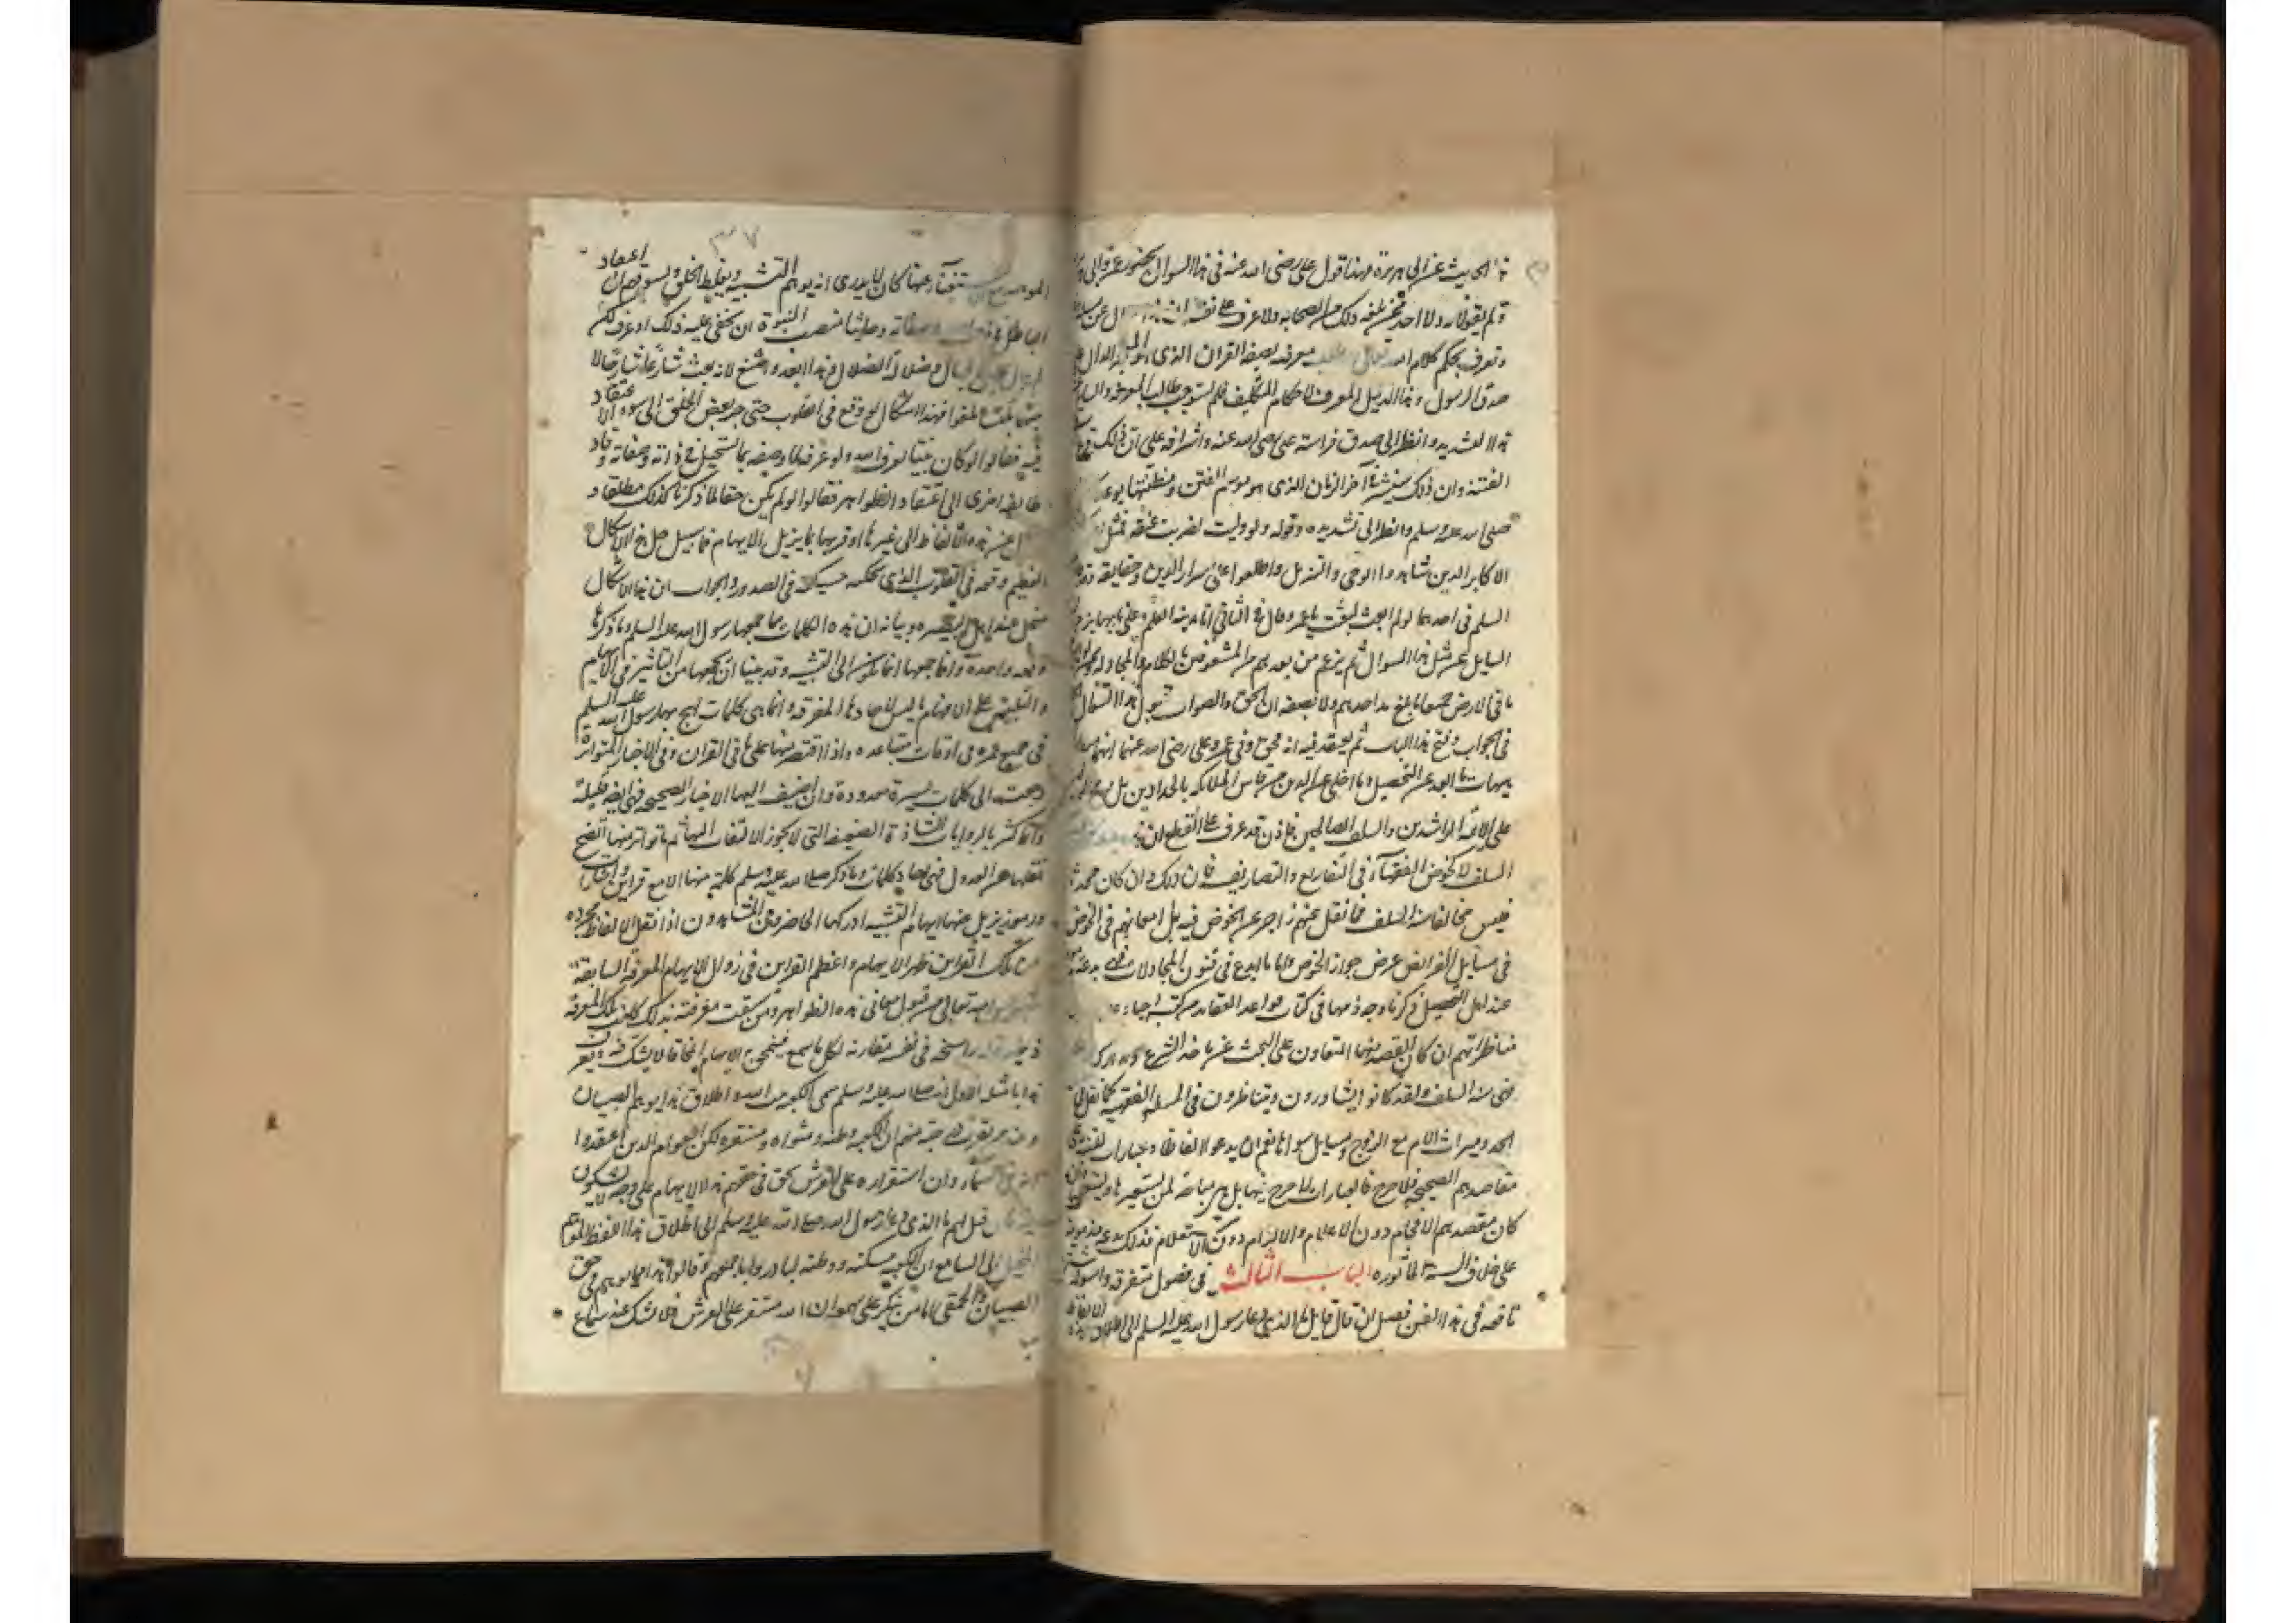 الحديث عن ابى هريرة وهذا قول على رضى الله عنه فى هذا السوال بحضور عمر وابى
ولم يقولا له ولا احد ممن بلغه ذلك من الصحابه ولا عرف على نفسه ان هذا سوال عن
وتعرف بحكم كلام الله تعالى معرفه لصفه القران الذى الدال على
صدق الرسول وهذا الدليل المعرف لاحكام التكليف فلم يستوجب طالب المعرفه
هذا التشديد وانظر الى صدق فراسة على رضى الله عنه واشرافه على ان ذلك قرع
الفتنة وان ذلك سينتشر فى آخر الزمان الذى هو موسم الفتن ومظنتها بوعد
صلى الله عليه وسلم وانظر الى تشديده وقوله ولو وليت لضربت عنقه فمثل
الاكابر الذين شاهدوا الوحى والتنزيل واطلعوا على اسرار الدين وحقايقه وقد
السلم فى احدهما لو لم ابعث لبعث يا عمر وقال فى الثانى انا مدينة العلم وعلى بابها
السايل عن مثل هذا السوال ثم يزعم من بعدهم من المشغوفين بالكلام والمجادلة
ما فى الارض جميعا ما بلغ مد احدهم ولا نصيفه ان الحق والصواب قبول هذا السوال
فى الجواب وفتح هذا الباب ثم يعتقد فيه انه محق وفى عمر وعلى رضى الله عنهما انهما
هيهات ما ابعد عن التحصيل وما اخلى عن الدين من قاس الملائكه بالحدادين
على الائمة الراشدين والسلف الصالحين فاذن قد عرف على القطع ان
السلف لا كخوض الفقهاء فى التفاريع والتصاريف فان ذلك وان كان محدثا
فليس مخالفا لسنة السلف فما نقل عنهم زاجر عن الخوض فيه بل امعانهم فى الخوض
فى مسايل الفرايض عرض جواز الخوض واما ما ابدع فى فنون المجادلات فهى بدعة
عند اهل التحصيل ذكرنا وجه ذمها فى كتاب قواعد العقايد من كتب احياء
مناظراتهم ان كان القصد منها التعاون على البحث عن ماخذ الشرع ومدارك
فهى سنة السلف ولقد كانوا يتشاورون ويتناظرون فى المسايل الفقهيه كما نقل
الجد وميراث الام مع الزوج ومسايل سواها نعم ان ابدعوا الفاظا وعبارات
مقاصدهم الصحيحه فلا حرج فالعبارات لا حرج فيها بل هى مباحة لمن يستعيرها ويستعملها وان
كان مقصدهم الافحام دون الاعلام والالزام دون الاستعلام فذلك بدعة مذمومة
على خلاف السنة المأثوره الباب الثالث فى فصول متفرقه واسولة
نافعه فى هذا الفن فصل ان قال قايل ما الذى دعا رسول الله عليه السلم الى اطلاق هذه الالفاظ
٣٧
الموهمة مع الاستغناء عنها كان لا يدرى انه يوهم التشبيه ويغلط الخلق ويسوقهم الى اعتقاد
الباطل فى ذات الله وصفاته وحاشا منصب النبوة ان يخفى عليه ذلك او عرف لكن
لم يبال بجهل الجهال وضلال الضلال وهذا ابعد واشنع لانه بعث شارعا شارحا لا
مبهما ملبسا ملغزا فهذا اشكال له وقع فى القلوب حتى جر بعض الخلق الى سوء الاعتقاد
فيه فقالوا لو كان نبيا لعرف الله ولو عرفه لما وصفه بما يستحيل فى ذاته وصفاته وقاد
طايفة اخرى الى اعتقاد الظواهر فقالوا لو لم يكن حقا لما ذكره كذلك مطلقا و
عن هذه الالفاظ الى غيرها او قرنها بما يزيل الايهام فما سبيل حل هذا الاشكال
العظيم وقعه فى القلوب الذى تحكمه حسيكة فى الصدور والجواب ان هذا الاشكال
منحل عند اهل البصيره وبيانه ان هذه الكلمات ما جمعها رسول الله عليه السلم وما ذكرها
دفعه واحدة وانما جمعها المايلون الى التشبيه وقد بينا ان لجمعها من التاثير فى الايهام
والتلبيس على الافهام ما ليس لاحادها المفرقه وانما هى كلمات لهج بها رسول الله عليه السلم
فى جميع عمره فى اوقات متباعده واذا اقتصر منها على ما فى القران وفى الاخبار المتواتر
رجعت الى كلمات يسيرة معدودة وان اضيف اليها الاخبار الصحيحه فهى ايضا قليلة
وانما كثر بالروايات الشاذة الضعيفه التى لا يجوز الالتفات اليها ثم ما تواتر منها ان صح
نقلها عن العدول فهى احاد كلمات وما ذكر صلى الله عليه وسلم كلمة منها الا مع قراين واشارات
ورموز يزيل عنها ايهام التشبيه ادركها الحاضرون المشاهدون اذا نقل الالفاظ مجرده
عن تلك القراين ظهر الايهام واعظم القراين فى زوال الايهام المعرفه السابقه
بتقديس الله تعالى عن قبول معانى هذه الظواهر ومن سبقت معرفته بذلك كانت تلك المعرفة
ذخيرة له راسخة فى نفسه مقارنة لكل ما يسمع فينمحق الايهام انمحاقا لا يشك فيه ويعرف
هذا بامثله الاول انه صلى الله عليه وسلم سمى الكعبه بيت الله واطلاق هذا يوهم الصبيان
وعند من يقرب درجته منهم ان الكعبه وطنه ومثواه ومستقره لكن العوام الذين اعتقدوا
انه فى السماء وان استقراره على العرش ينمحق فى حقهم هذا الايهام على وجه لا يشكون
فيه فلو قيل لهم ما الذى دعا رسول الله صلى الله عليه وسلم الى اطلاق هذا اللفظ الموهم
المخيل الى السامع ان الكعبه مسكنه ووطنه لبادروا باجمعهم وقالوا هذا انما يوهم فى حق
الصبيان والحمقى اما من تكرر على سمعه ان الله مستقر على العرش فلا يشك عند سماع